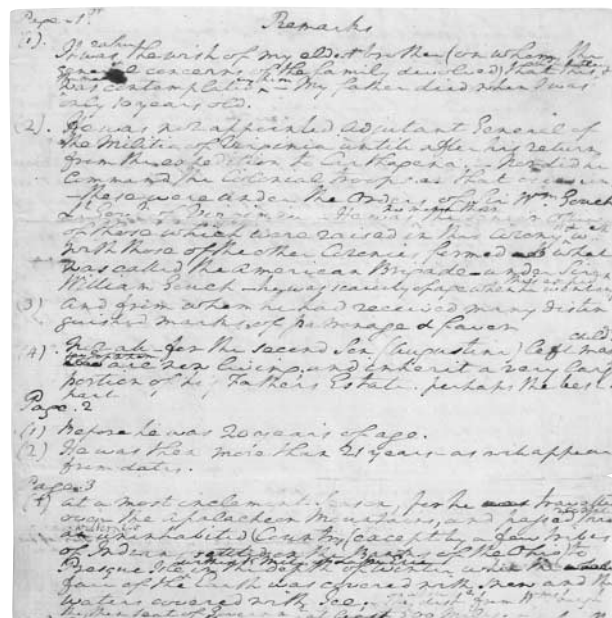 Page 1st Remarks
(1). It was the wish of my eldest brother (on whom the
general concerns of the family devolved) that this
was contemplation — My father died when I was
only 10 years old.
(2). He was not appointed Adjutant General of
the Militia of Virginia untill after his return
from the expedition to Carthagena. — Nor did he
Command the Colonial troops on that occasion
— these were under the Orders of Sir Wm. Gouch
Lt. Govr. of Virginia
of those which were raised in this Colony wch
with those of the other Colonies formed what
was called the American Brigade — under Sir
William Gouch — he was scarcely of age when
(3) and from whom he had received many distin
guished marks of patronage & favor
(4). Not all — for the second Son (Augustine) left many childn
are now living and inherit a very large
portion of his Fathers Estate. perhaps the best
part
Page. 2
(1) Before he was 20 years of age.
(2) He was then more than 21 years as will appear
from dates.
Page. 3
(4) at a most inclement Season, for he travelled
over the Apalacheon Mountains, and passed
an uninhabited Country (except by a few tribes
of Indians settled on the Banks of the Ohio) to
Presque Isle within
face of the Earth was covered with snow and the
waters covered with Ice;